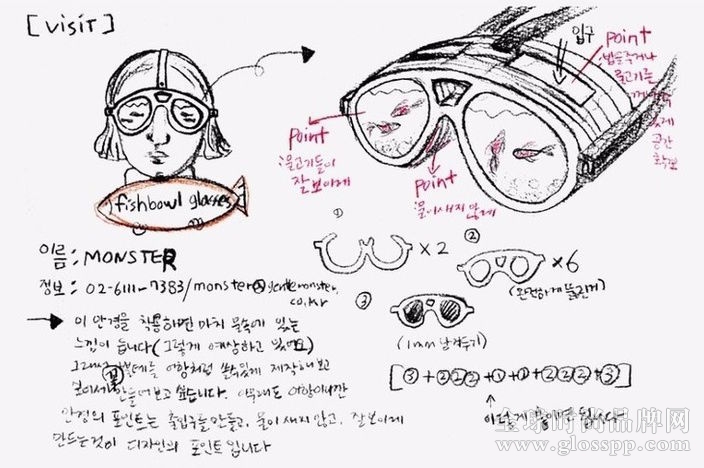 [VISIT]
fishbowl glasses
이름: MONSTER
정보: 02-6111-7383/monster@gentlemonster.
co.kr
이 안경을 착용하면 마치 물속에 있는
느낌이 듭니다(그렇게 예상하고 있어요)
그래서
만들어보고 싶습니다.
안경의 포인트는 출입구를 만들고, 물이 새지 않고, 잘보이게
만드는것이 디자인의 포인트 입니다
입구
point
:밥을주거나
물고기를
공간
확보
point
:물고기들이
잘보이게
point
:물이새지 않게
①
×2
②
×6
(완전하게 뚫린거)
③
(1mm 남겨두기)
[③+②②②+①+①+②②②+③]
이렇게 됩니다
全球时尚品牌网
www.glosspp.com